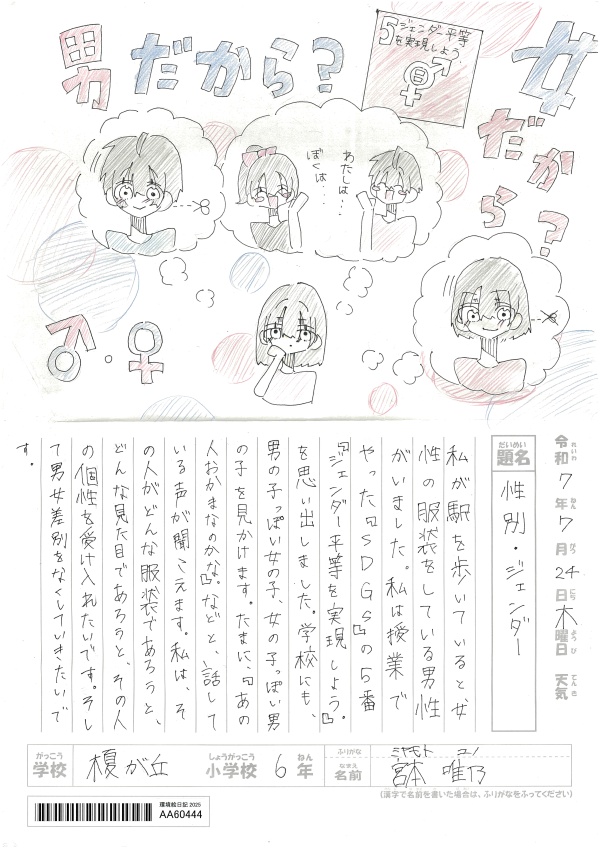 男だから?
5 ジェンダー平等
を実現しよう
女だから?
わたしは…
ぼくは…
令和7年7月24日木曜日 天気
れいわ ねん がつ にち ようび てんき
だいめい
題名 性別・ジェンダー
私が駅を歩いていると、女
性の服装をしている男性
がいました。私は授業で
やった『SDGS』の5番
『ジェンダー平等を実現しよう。』
を思い出しました。学校にも、
男の子っぽい女の子、女の子っぽい男
の子を見かけます。たまに、『あの
人おかまなのかな。』などと、話して
いる声が聞こえます。私は、そ
の人がどんな服装であろうと、
どんな見た目であろうと、その人
の個性を受け入れたいです。そし
て男女差別をなくしていきたいで
す。
がっこう しょうがっこう ねん
学校 榎が丘 小学校 6年
ふりがな ミヤモト ユノ
なまえ
名前 宮本 唯乃
(漢字で名前を書いた場合は、ふりがなをふってください)
環境絵日記 2025
AA60444